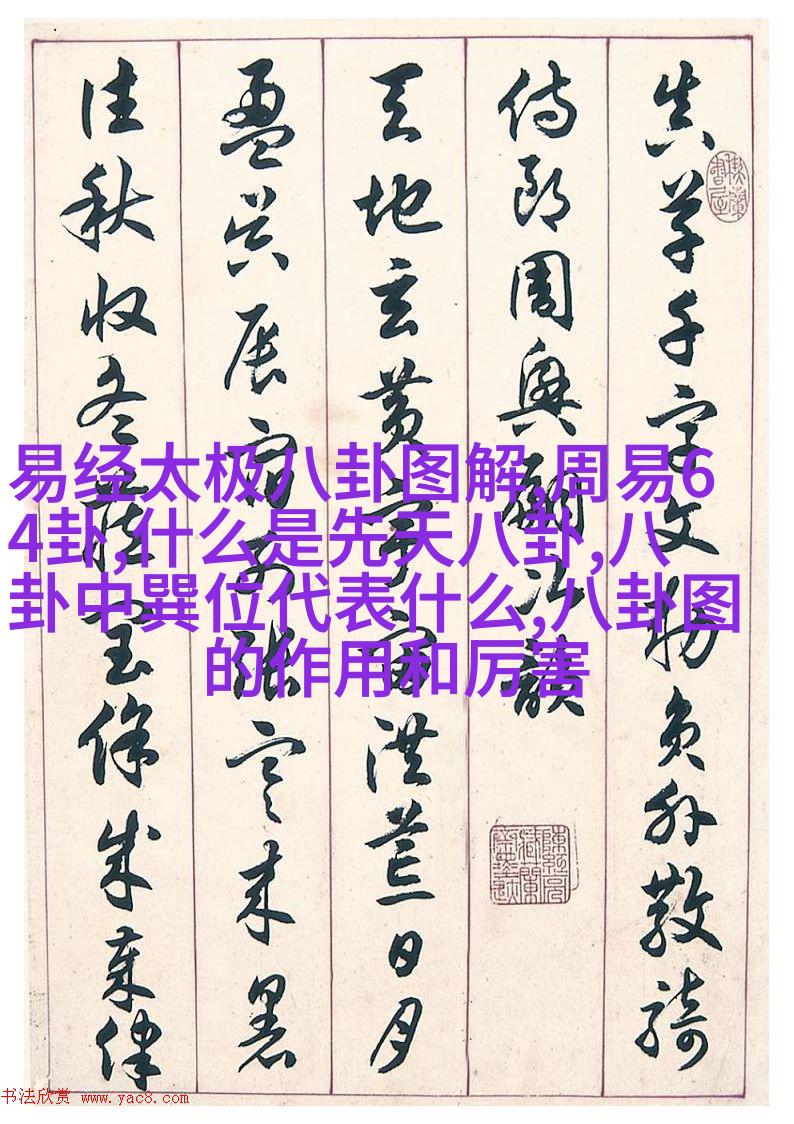 真草千字文勅員外散騎
侍郎周興嗣次韻
天地玄黃宇宙洪荒日月
盈昃辰宿列張寒來暑
往秋收冬藏閏餘成歲律
易经太极八卦图解,周易6
4卦,什么是先天八卦,八
卦中巽位代表什么,八卦图
的作用和厉害
书法欣赏 www.yac8.com